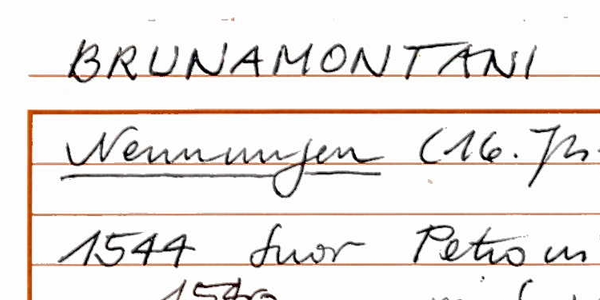 BRUNAMONTANI
Nennungen (16. Jh.
1544 Suor Petro